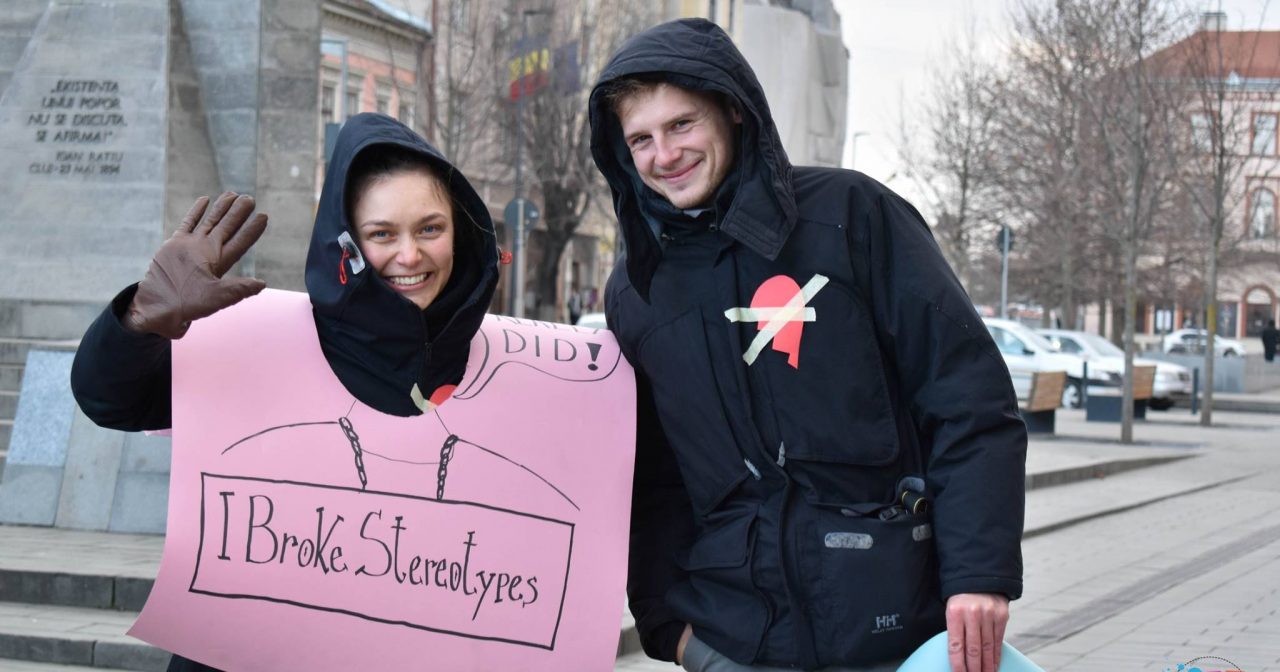 „EXISTENȚA
UNUI POPOR
NU SE DISCUTĂ,
SE AFIRMĂ!"
IOAN RAȚIU
CLUJ - 23 MAI 1894
DID!
I Broke Stereotypes
HH
HELLY HANSEN